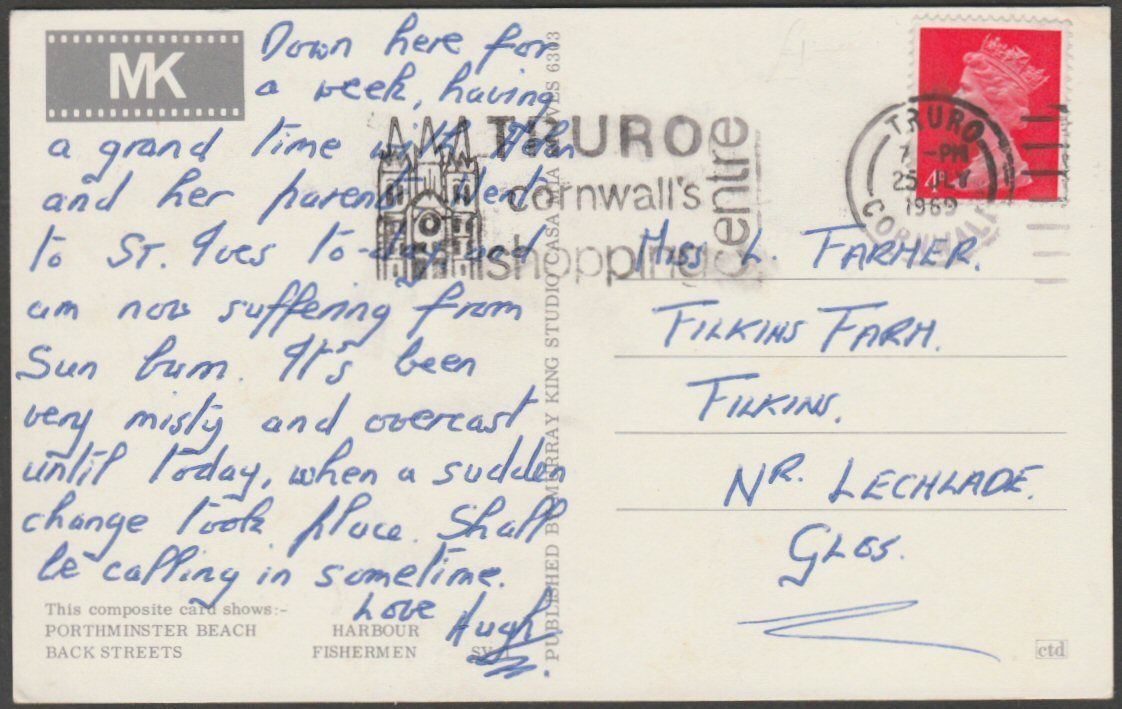 MK
Down here for
a week, having
a grand time with John
and her parents. Went
to St. Ives to-day and
am now suffering from
Sun burn. It's been
very misty and overcast
until today, when a sudden
change took place. Shall
be calling in sometime.
Love
Hugh
This composite card shows:-
PORTHMINSTER BEACH HARBOUR
BACK STREETS FISHERMEN
PUBLISHED BY MURRAY KING STUDIO CASA MIA ST. IVES 6303
TRURO
cornwall's
shopping
centre
TRURO
7 - PM
25 JLY
1969
CORNWALL
4D
MISS L. FARMER.
FILKINS FARM.
FILKINS.
NR. LECHLADE.
GLOS.
ctd